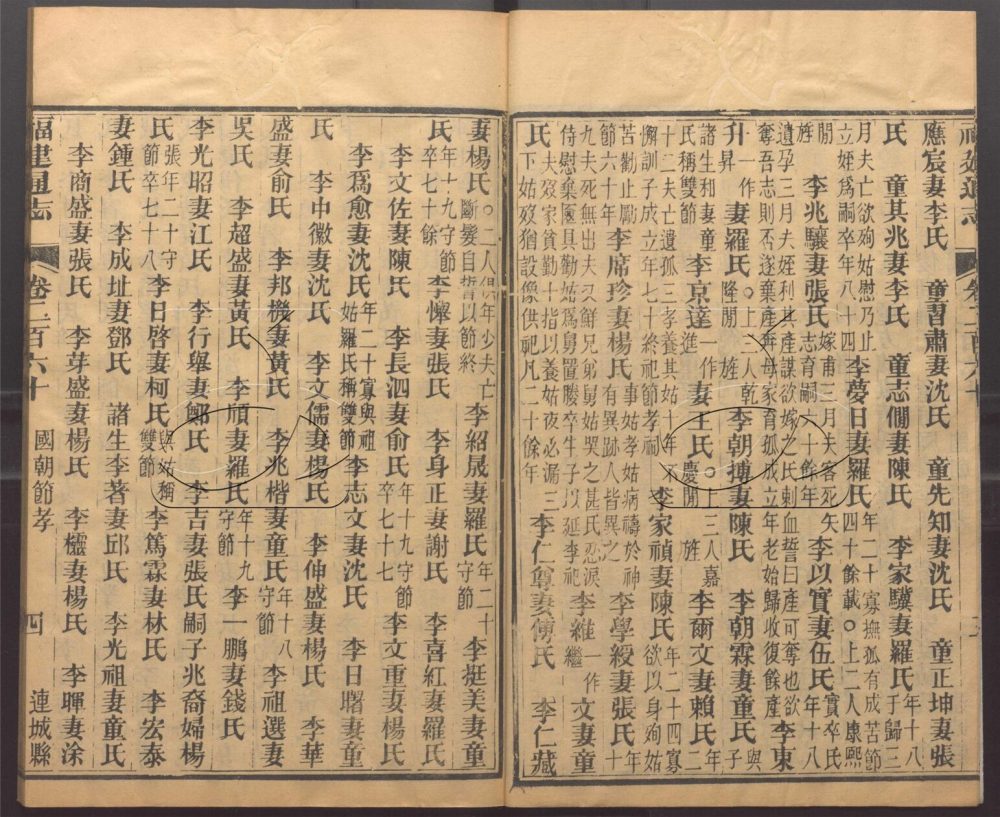 應宸妻李氏 童習肅妻沈氏 童先知妻沈氏 童正坤妻張
氏 童其兆妻李氏 童志僩妻陳氏 李家驥妻羅氏年十八于歸三
月夫亡欲殉姑慰乃止立姪爲嗣卒年八十四 李夢日妻羅氏年二十寡撫孤有成苦節四十餘載○上二人康熙
間旌 李兆驤妻張氏嫁甫三月夫客死矢志育嗣六十餘年 李以實妻伍氏實卒氏年十八
遺孕三月夫姪利其產謀欲嫁之氏刺血誓曰產可奪也欲奪吾志則不遂棄產奔母家育孤成立年老始歸收復餘產 李東
升一作昇妻羅氏隆間旌○上二人乾 李朝搏妻陳氏 李朝霖妻童氏與子
諸生和妻童氏稱雙節 李京達一作進妻王氏○上三人嘉慶間旌 李爾文妻賴氏年二
十二夫亡遺孤三孝養其姑十年不懈訓子成立年七十終祀節孝祠 李家禎妻陳氏年二十四寡欲以身殉姑
苦勸止勵節六十年 李席珍妻楊氏事姑孝姑病禱於神有異跡人皆異之 李學綬妻張氏年十
九夫死無出夫又鮮兄弟舅姑哭之甚氏忍淚侍慰棄匳具勤姑爲舅置媵卒生子以延李祀 李維繼一作文妻童
氏夫歿家貧勤十指以養姑夜必漏三下姑歿猶設像供祀凡二十餘年 李仁尊妻傅氏 李仁藏
妻楊氏○二人俱年少夫亡斷髮自誓以節終 李紹晟妻羅氏年二十守節 李挺美妻童
氏年十九守節卒七十餘 李懷妻張氏 李身正妻謝氏 李喜紅妻羅氏
李文佐妻陳氏 李長泗妻俞氏年十九守節卒七十七 李文重妻楊氏
李爲愈妻沈氏年二十寡與祖姑羅氏稱雙節 李志文妻沈氏 李日曙妻童
氏 李中徽妻沈氏 李文儒妻楊氏 李伸盛妻楊氏 李華
盛妻俞氏 李邦機妻黃氏 李兆楷妻童氏年十八守節 李祖選妻
吳氏 李超盛妻黃氏 李頎妻羅氏年十九守節 李一鵬妻錢氏
李光昭妻江氏 李行舉妻鄭氏 李吉妻張氏嗣子兆裔婦楊
氏張年二十守節卒七十八 李日啓妻柯氏與姑稱雙節 李篤霖妻林氏 李宏泰
妻鍾氏 李成址妻鄧氏 諸生李著妻邱氏 李光祖妻童氏
李商盛妻張氏 李芽盛妻楊氏 李櫨妻楊氏 李暉妻涂
福建通志 卷二百六十 國朝節孝 四 連城縣